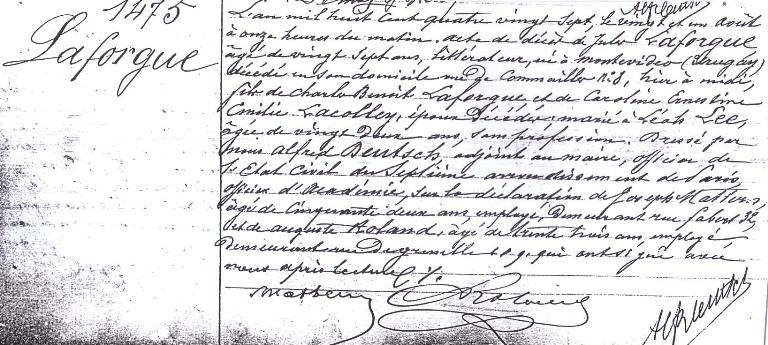 1475
Laforgue
L'an mil huit cent quatre vingt sept, le vingt et un août
à onze heures du matin, acte de décès de Jules Laforgue
âgé de vingt sept ans, littérateur, né à Montevideo (Uruguay)
décédé en son domicile rue de Commailles No 3, hier à midi,
fils de Charles Benoit Laforgue et de Caroline Ernestine
Emilie Lacolley, époux décédés; marié à Léah Lee,
âgée de vingt deux ans, sans profession. Dressé par
nous Alfred Beutsch, adjoint au maire, officier de
l'Etat Civil du Septième arrondissement de Paris,
officier d'Académie, sur la déclaration de Joseph
âgé de Cinquante deux ans, employé, demeurant rue Fabert 32,
et de auguste Roland, âgé de trente trois ans, employé,
demeurant rue De grenelle qui ont signé avec
nous après lecture
Roland